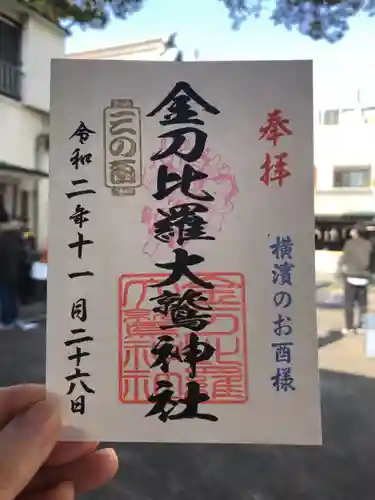 奉拝
横濱のお酉様
金刀比羅大鷲神社
三の酉
令和二年十一月二十六八日